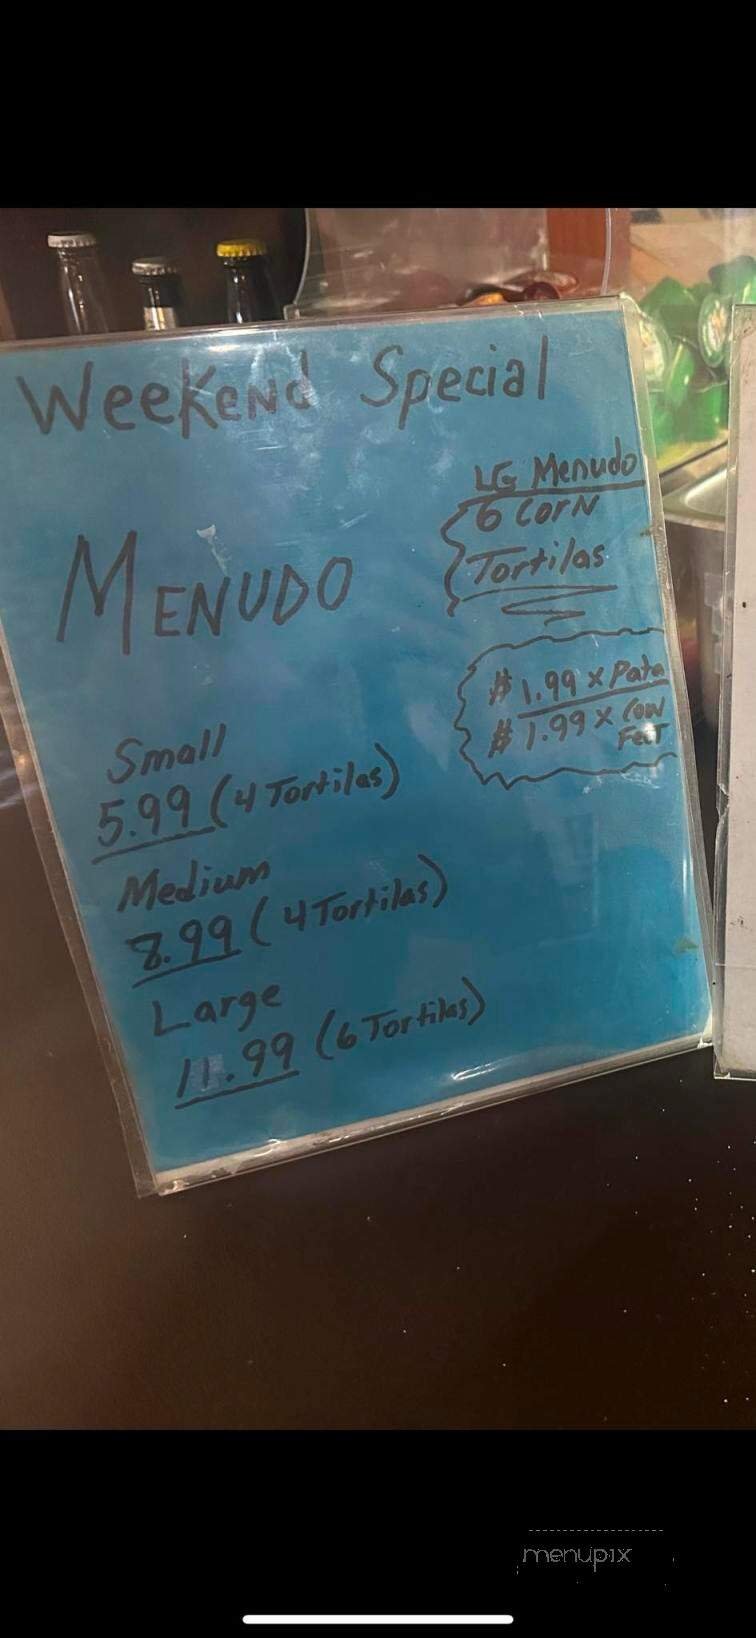 Weekend Special
LG Menudo
6 Corn
Tortilas
MENUDO
$1.99 x Pata
$1.99 x Cow
Feet
Small
5.99 (4 Tortilas)
Medium
8.99 (4 Tortilas)
Large
11.99 (6 Tortilas)
menupix